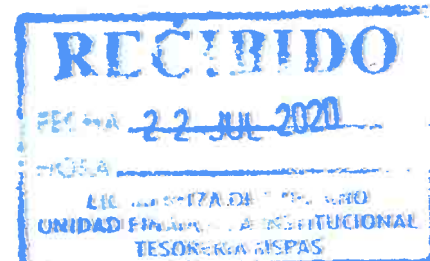 RECIBIDO
FECHA 22 JUL 2020
HORA
LIC.
UNIDAD FINANCIERA INSTITUCIONAL
TESORERIA ISPAS